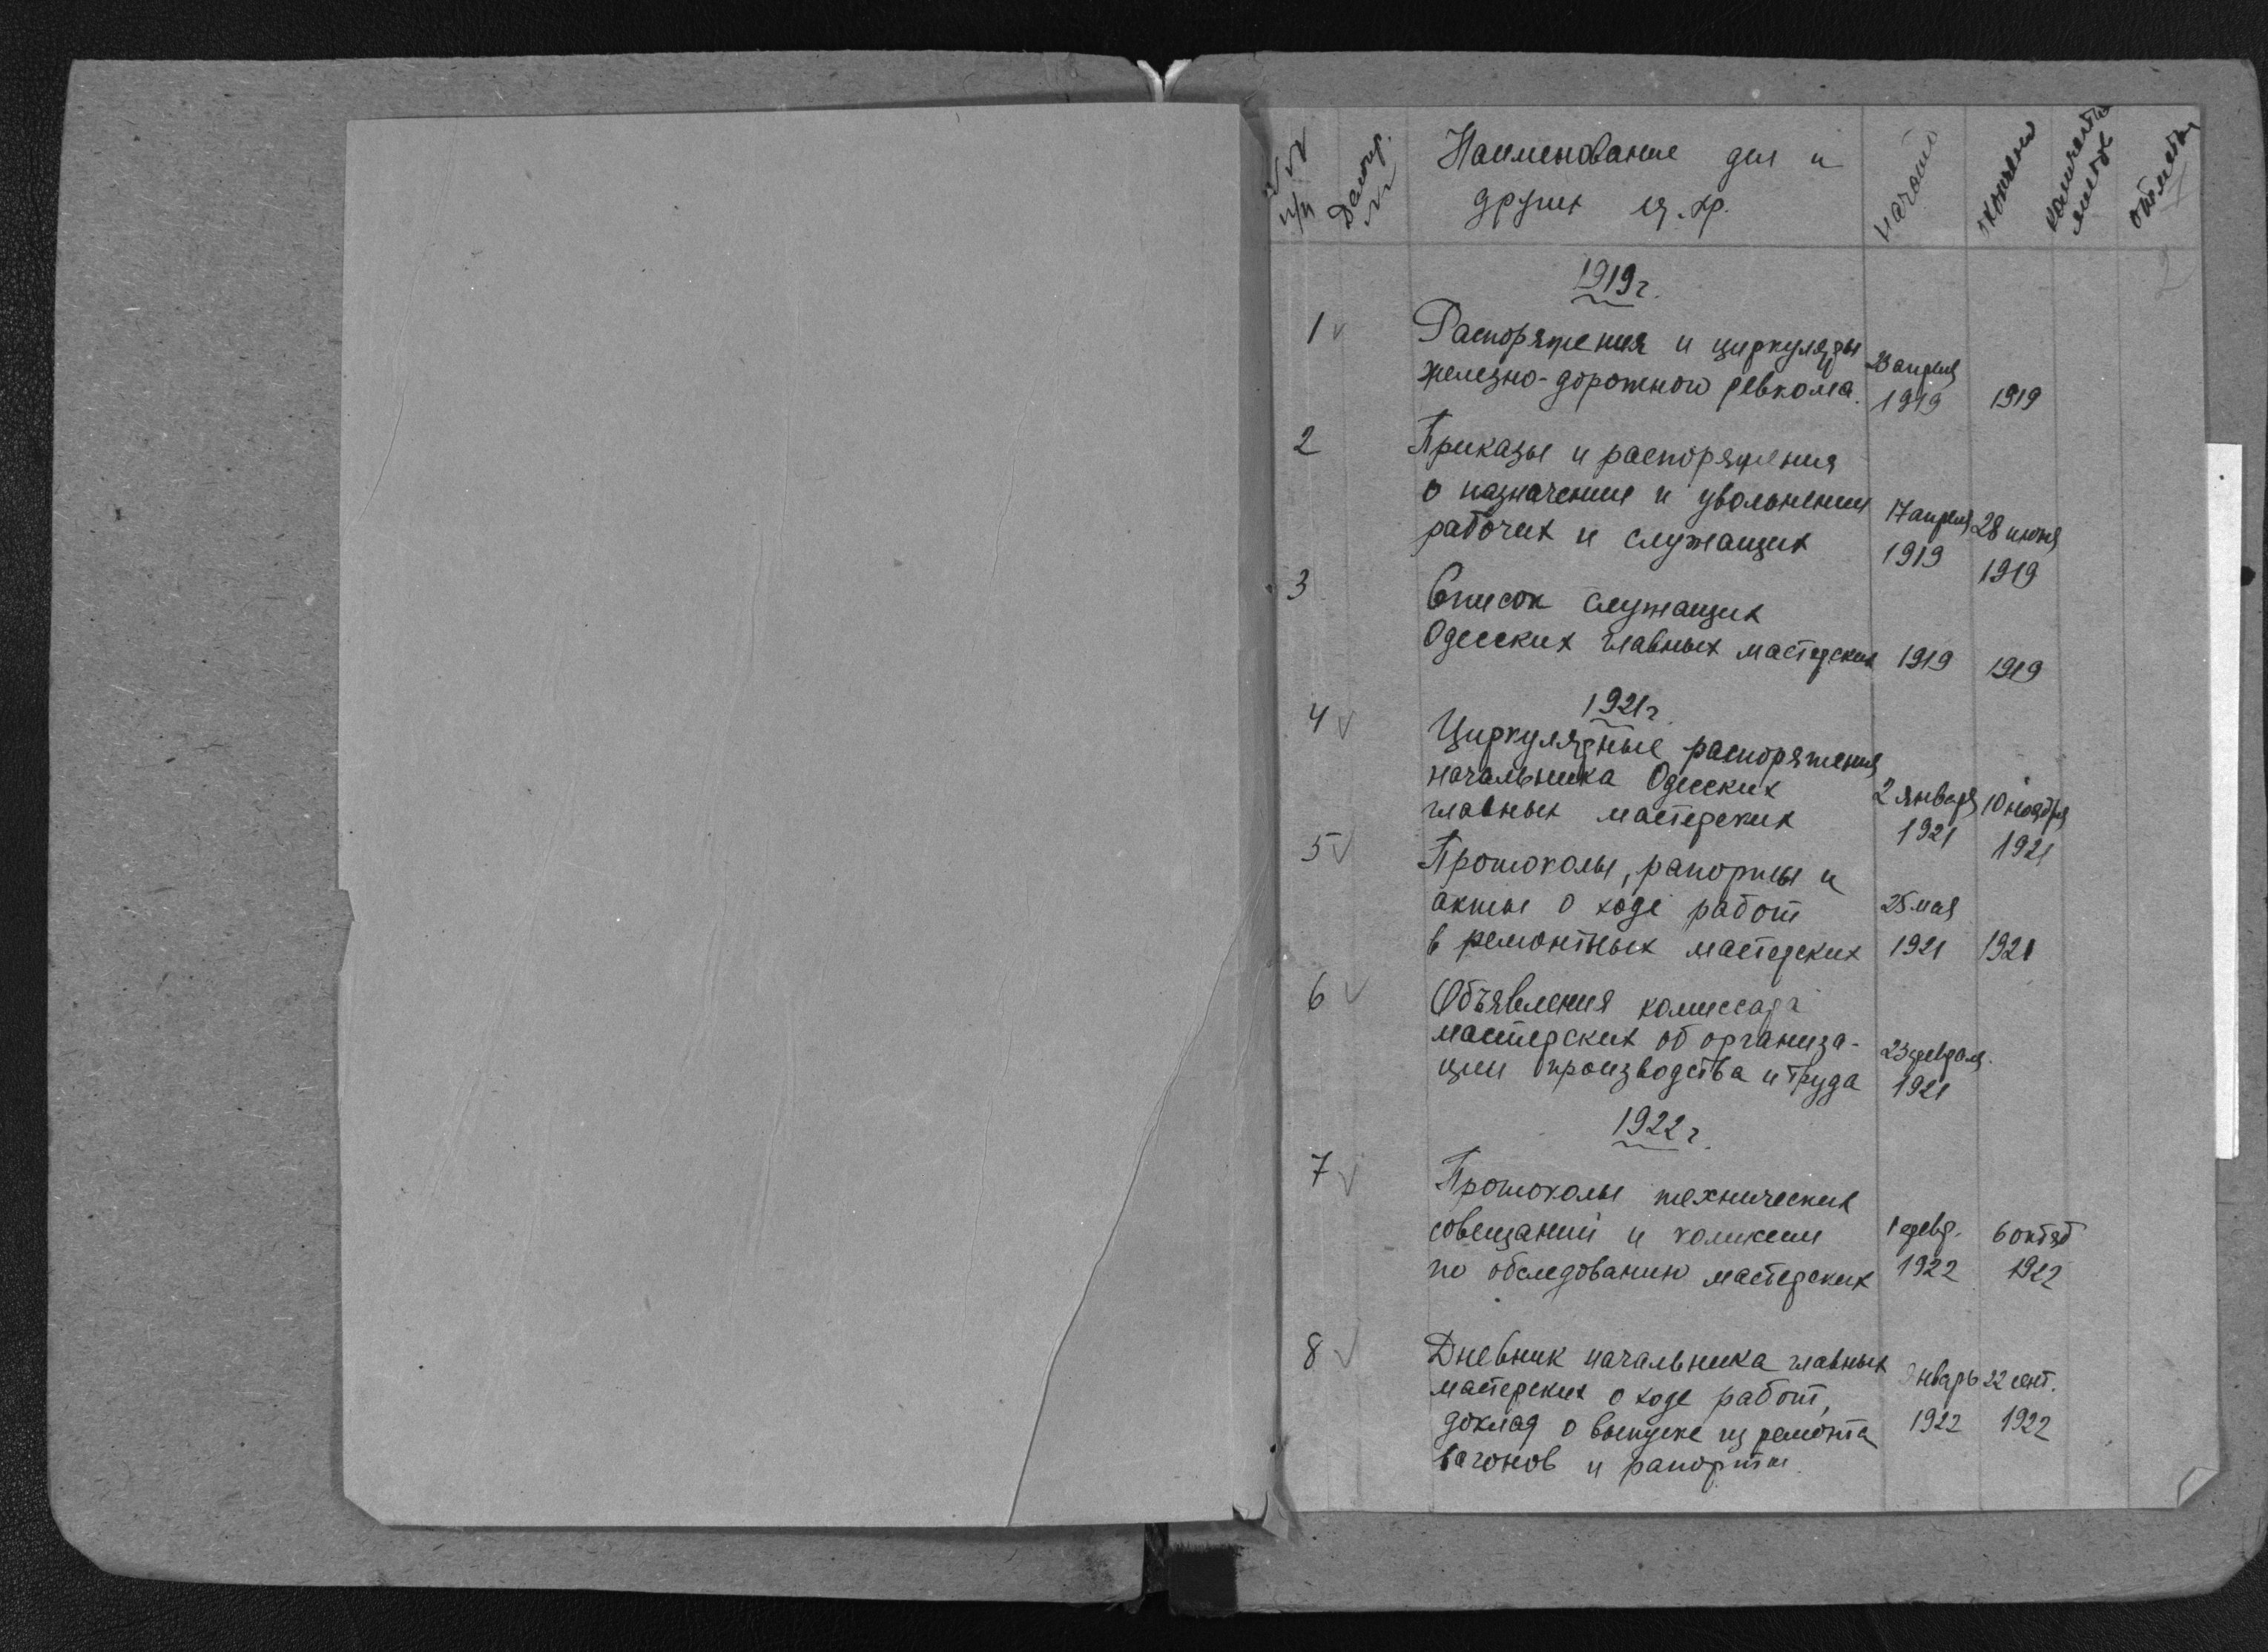 №№ п/п
Делопр. №
Наименование дел и
других ед. хр.
начато
окончено
количество листов
отметки
1919 г.
1 Распоряжения и циркуляры
железно-дорожного ревкома.
23 апреля 1919
1919
2 Приказы и распоряжения
о назначении и увольнении
рабочих и служащих
17 апреля 1919
28 июня 1919
3 Список служащих
Одесских главных мастерских
1919
1919
1921 г.
4 Циркулярные распоряжения
начальника Одесских
главных мастерских
2 января 1921
10 ноября 1921
5 Протоколы, рапорты и
акты о ходе работ
в ремонтных мастерских
25 мая 1921
1921
6 Объявления комиссара
мастерских об организа-
ции производства и труда
23 февраля 1921
1922 г.
7 Протоколы технических
совещаний и комиссии
по обследованию мастерских
1 февр. 1922
6 октяб 1922
8 Дневник начальника главных
мастерских о ходе работ,
доклад о выпуске из ремонта
вагонов и рапорты
январь 1922
22 сент. 1922